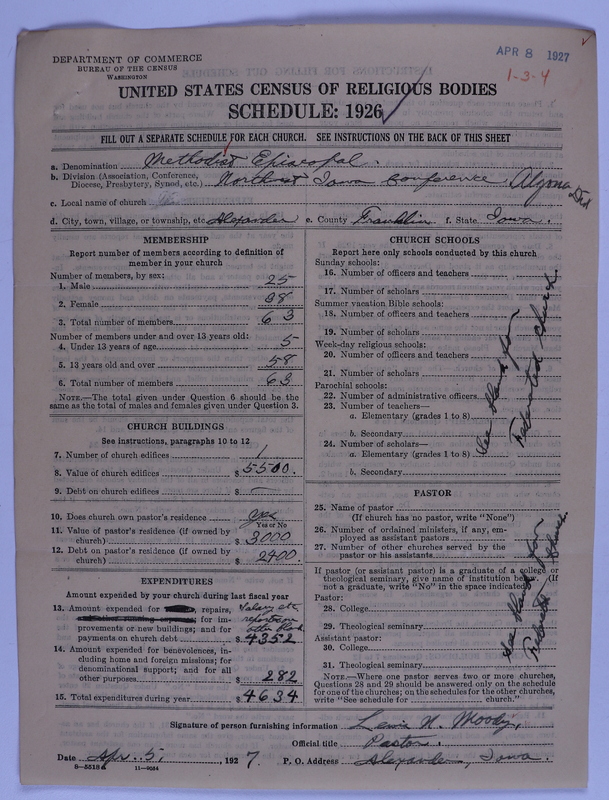 DEPARTMENT OF COMMERCE
BUREAU OF THE CENSUS
WASHINGTON
APR 8 1927
1-3-4
UNITED STATES CENSUS OF RELIGIOUS BODIES
SCHEDULE: 1926
FILL OUT A SEPARATE SCHEDULE FOR EACH CHURCH. SEE INSTRUCTIONS ON THE BACK OF THIS SHEET
a. Denomination Methodist Episcopal.
b. Division (Association, Conference, Diocese, Presbytery, Synod, etc.) Northwest Iowa Conference, Algona Dist
c. Local name of church
d. City, town, village, or township, etc. Alexander e. County Franklin f. State Iowa.
MEMBERSHIP
Report number of members according to definition of
member in your church
Number of members, by sex:
1. Male 25
2. Female 38
3. Total number of members 63
Number of members under and over 13 years old:
4. Under 13 years of age 5
5. 13 years old and over 58
6. Total number of members 63
NOTE.—The total given under Question 6 should be the
same as the total of males and females given under Question 3.
CHURCH BUILDINGS
See instructions, paragraphs 10 to 12
7. Number of church edifices 1
8. Value of church edifices $ 5500.
9. Debt on church edifices $ —
10. Does church own pastor's residence yes
Yes or No
11. Value of pastor's residence (if owned by
church) $ 3000
12. Debt on pastor's residence (if owned by
church) $ 2400.
EXPENDITURES
Amount expended by your church during last fiscal year
13. Amount expended for repairs,
for im-
provements or new buildings; and for
payments on church debt $ 4352
Salary etc
14. Amount expended for benevolences, in-
cluding home and foreign missions; for
denominational support; and for all
other purposes $ 282
15. Total expenditures during year $ 4634
CHURCH SCHOOLS
Report here only schools conducted by this church
Sunday schools:
16. Number of officers and teachers
17. Number of scholars
Summer vacation Bible schools:
18. Number of officers and teachers
19. Number of scholars
Week-day religious schools:
20. Number of officers and teachers
21. Number of scholars
Parochial schools:
22. Number of administrative officers
23. Number of teachers—
a. Elementary (grades 1 to 8)
b. Secondary
24. Number of scholars—
a. Elementary (grades 1 to 8)
b. Secondary
See blank for
Federated Church
PASTOR
25. Name of pastor
(If church has no pastor, write "None")
26. Number of ordained ministers, if any, em-
ployed as assistant pastors
27. Number of other churches served by the
pastor or his assistants
If pastor (or assistant pastor) is a graduate of a college or
theological seminary, give name of institution below. (If
not a graduate, write "No" in the space indicated)
Pastor:
28. College
29. Theological seminary
Assistant pastor:
30. College
31. Theological seminary
See blank for
Federated Church.
NOTE.—Where one pastor serves two or more churches,
Questions 28 and 29 should be answered only on the schedule
for one of the churches; on the schedules for the other churches,
write "See schedule for church."
Signature of person furnishing information Lewis N. Moody,
Official title Pastor.
Date Apr. 5, 1927 P. O. Address Alexander, Iowa.
8—5518a 11—9064